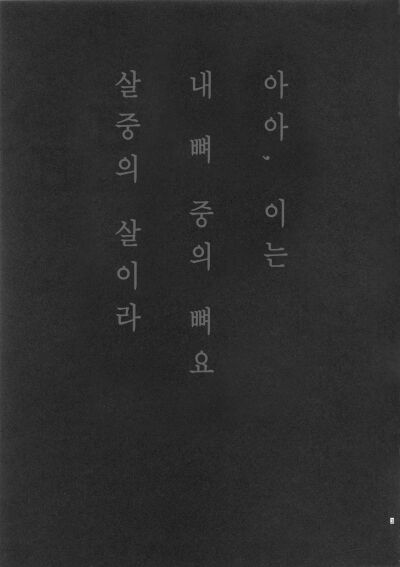 아아, 이는
내 뼈 중의 뼈요
살중의 살이라